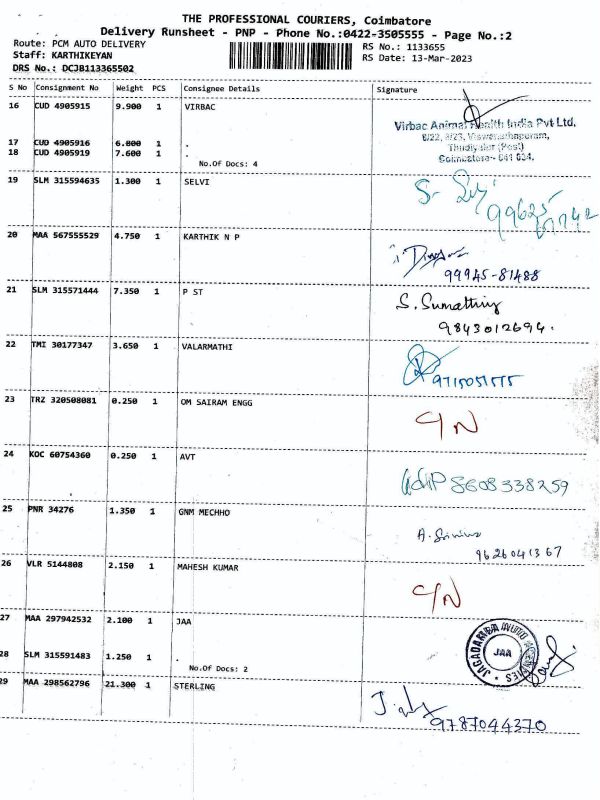 THE PROFESSIONAL COURIERS, Coimbatore
Delivery Runsheet - PNP - Phone No.:0422-3505555 - Page No.:2
Route: PCM AUTO DELIVERY RS No.: 1133655
Staff: KARTHIKEYAN RS Date: 13-Mar-2023
DRS No.: DCJB113365502
S No Consignment No Weight PCS Consignee Details Signature
16 CUD 4905915 9.900 1 VIRBAC
Virbac Animal Health India Pvt Ltd.
6/22, 6/23, Viswanathapuram,
17 CUD 4905916 6.800 1 .
Thudiyalur (Post)
18 CUD 4905919 7.600 1 .
Coimbatore - 641 034.
No.Of Docs: 4
19 SLM 315594635 1.300 1 SELVI
20 MAA 567555529 4.750 1 KARTHIK N P
99945-81488
21 SLM 315571444 7.350 1 P ST
S. Sumathiy
9843012694.
22 TMI 30177347 3.650 1 VALARMATHI
23 TRZ 320508081 0.250 1 OM SAIRAM ENGG
C/N
24 KOC 60754360 0.250 1 AVT
8608338259
25 PNR 34276 1.350 1 GNM MECHHO
9626041367
26 VLR 5144808 2.150 1 MAHESH KUMAR
C/N
27 MAA 297942532 2.100 1 JAA
JAGADAMBA AUTO AGENCIES
JAA
28 SLM 315591483 1.250 1 .
No.Of Docs: 2
29 MAA 298562796 21.300 1 STERLING
9787044370